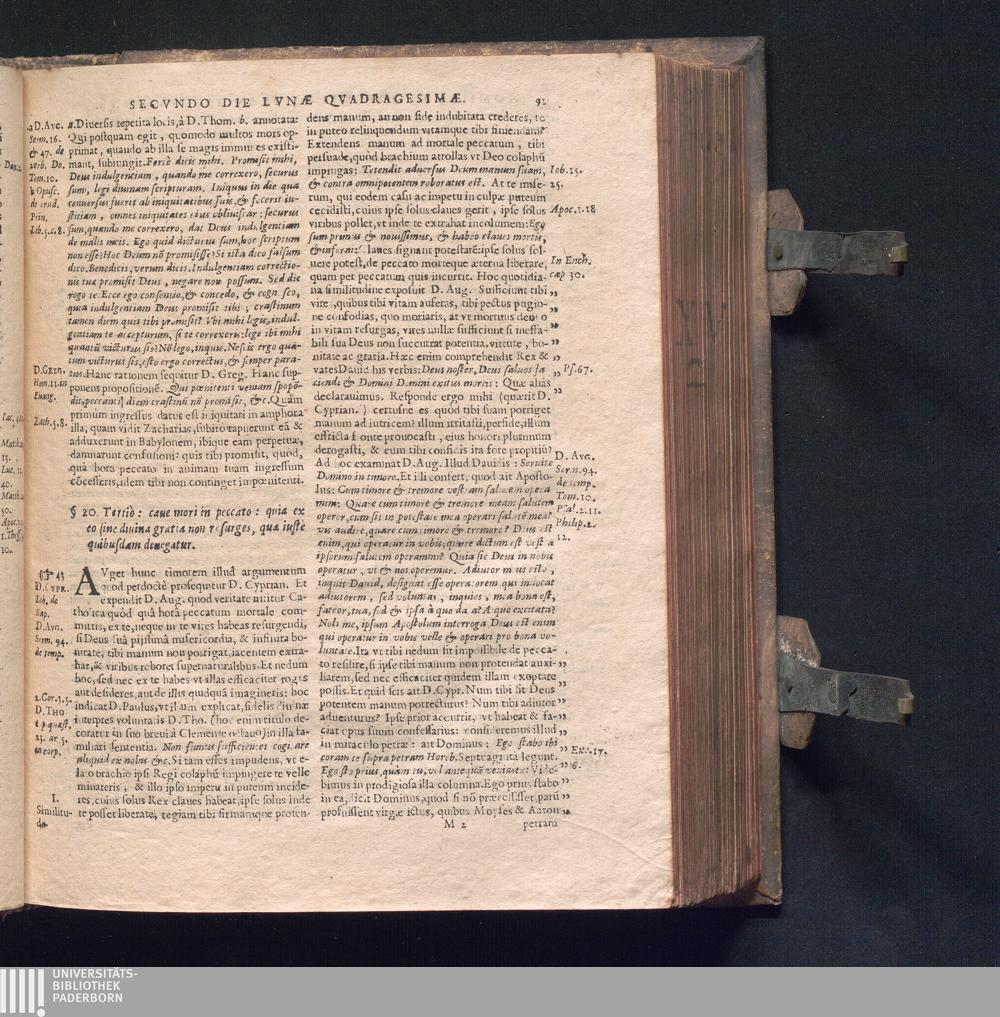 SECVNDO DIE LVNÆ QVADRAGESIMÆ.
a D. Avg.
Serm. 16.
& 47. de
verb. Do.
Tom. 10.
b Opusc.
de erud.
Prin.
Lib. 5. c. 8.
D. Greg.
Hom. 12. in
Euang.
Zach. 5. 8.
a. Diuersis repetita locis, à D. Thom. b. annotata:
Qui postquam egit, quomodo multos mors op-
primat, quando ab illa se magis immunes existi-
mant, subiungit. Fortè dicis mihi. Promisit mihi,
Deus indulgentiam, quando me correxero, securus
sum, legi diuinam scripturam. Iniquus in die qua
conuersus fuerit ab iniquitatibus suis, & fecerit iu-
stitiam, omnes iniquitates eius obliuiscar: securus
sum, quando me correxero, dat Deus indulgentiam
de malis meis. Ego quid dicturus sum, hoc scriptum
non esse? Hoc Deum nō promisisse? Si ista dico falsum
dico. Benedicis, verum dicis. Indulgentiam correctio-
nis tuæ promisit Deus, negare non possum. Sed dic
rogo te. Ecce ego consentio, & concedo, & cogn sco,
quia indulgentiam Deus promisit tibi, crastinum
tamen diem quis tibi promisit? Vbi mihi legis, indul-
gentiam te accepturum, si te correxeris: lege ibi mihi
quantū victurus sis? Nō lego, inquis. Nescis ergo quan-
tum victurus sis, esto ergo correctus, & semper para-
tus. Hanc rationem sequitur D. Greg. Hanc sup-
ponens propositionē. Qui pœnitenti veniam spopō-
dit, peccanti diem crastinū nō promisit, &c. Quam
primum ingressus datus est iniquitati in amphora
illa, quam vidit Zacharias, subitò rapuerunt eā &
adduxerunt in Babylonem, ibique eam perpetuæ,
damnarunt confusioni: quis tibi promisit, quòd,
quâ hora peccato in animam tuam ingressum
cōcesseris, idem tibi non continget impœnitenti.
§ 20. Tertiò: caue mori in peccato: quia ex
eo sine diuina gratia non resurges, quæ iustè
quibusdam denegatur.
43
D. Cypr.
Lib. de
Sap.
D. Avg.
Serm. 94.
de temp.
2. Cor. 3. 5.
D. Tho
1. p. quæst.
23. ar. 5.
in corp.
1.
Similitu-
do.
AVget hunc timorem illud argumentum
quod perdoctè prosequitur D. Cyprian. Et
expendit D. Aug. quod veritate nititur Ca-
tholica quòd quâ horâ peccatum mortale com-
mittis, ex te, neque in te vires habeas resurgendi,
si Deus suâ pijssimâ misericordia, & infinita bo-
nitate, tibi manum non porrigat, iacentem extra-
hat, & viribus roboret supernaturalibus. Et nedum
hoc, sed nec ex te habes vt illas efficaciter roges
aut desideres, aut de illis quidquā imagineris: hoc
indicat D. Paulus, vt illum explicat, fidelis diuinæ
interpres voluntatis D. Tho. (hoc enim titulo de-
coratur in suo breui à Clemente octauo) in illa fa-
miliari sententia. Non sumus sufficientes cogitare
aliquid ex nobis &c. Si tam esses impudens, vt e-
leuato brachio ipsi Regi colaphū impingere te velle
minateris, & illo ipso impetu in puteum incide-
res, cuius solus Rex claues habeat, ipse solus inde
te posset liberate, regiam tibi firmamque proten-
dens manum, an non fide indubitata crederes, te
in puteo relinquendum vitamque tibi finiendam?
Extendens manum ad mortale peccatum, tibi
persuade, quòd brachium attollas vt Deo colaphū
impingas: Tetendit aduersus Deum manum suam,
& contra omnipotentem roboratus est. At te mise-
rum, qui eodem casu ac impetu in culpæ puteum
cecidisti, cuius ipse solus claues gerit, ipse solus
viribus pollet, vt inde te extrahat incolumem: Ego
sum primus & nouissimus, & habeo claues mortis,
& inferni: Claues signant potestatē: ipse solus sol-
uere potest, de peccato morteque æterna liberare,
quam per peccatum quis incurrit. Hoc quotidia-
na similitudine exposuit D. Aug. Sufficiunt tibi
vires, quibus tibi vitam auferas, tibi pectus pugio-
ne confodias, quo moriaris, at vt mortuus denuo
in vitam resurgas, vires nullæ sufficiunt si ineffa-
bili sua Deus non succurrat potentia, virtute, bo-
nitate ac gratia. Hæc enim comprehendit Rex &
vates Dauid his verbis: Deus noster, Deus saluos fa-
ciendi & Domini Domini exitus mortis: Quæ alias
declarauimus. Responde ergo mihi (quærit D.
Cyprian.) certusne es quòd tibi suam porriget
manum adiutricem? illum irritasti, perfide, illum
effricta fronte prouocasti, eius honori plurimum
derogasti, & eum tibi confidis ita fore propitiū?
Ad hoc examinat D. Aug. Illud Dauidis: Seruite
Domino in timore. Et illi confert, quod ait Aposto-
lus: Cum timore & tremore vestram salutem opera
mini: Quare cum timore & tremore meam salutem
operer, cum sit in potestate mea operari salutē meā?
vis audire, quare cum timore & tremore? Deus est
enim, qui operatur in vobis, quare dictum est vestrā
ipsorum salutem operamini? Quia sic Deus in nobis
operatur, vt & nos operemur. Adiutor meus esto,
inquit Dauid, designat esse operatorem qui inuocat
adiutorem, sed voluntas, inquies, mea bona est,
fateor, tua, sed & ipsa à quo data? A quo excitata?
Noli me, ipsum Apostolum interroga Deus est enim
qui operatur in vobis velle & operari pro bona vo-
luntate. Ita vt tibi nedum sit impossibile de pecca-
to resilire, si ipse tibi manum non protendat auxi-
liarem, sed nec efficaciter quidem illam exoptare
possis. Et quid scis ait D. Cypr. Num tibi sit Deus
potentem manum porrecturus? Num tibi adiutor
aduenturus? Ipse prior accurrit, vt habeat & fa-
ciat opus suum confessarius: consideremus illud
in miraculo petræ: ait Dominus: Ego stabo ibi
coram te supra petram Horeb. Septuaginta legunt.
Ego sto prius, quam tu, vel antequā venias tu: Vide-
bimus in prodigiosa illa columna. Ego prius stabo
in ea, dicit Dominus, quod si nō præcessisset, parū
profuissent virgæ ictus, quibus Moyses & Aaron
Iob. 15.
25.
Apoc. 1. 18
In Ench.
cap 30.
Ps. 67.
D. Avg.
Serm. 94.
de temp.
Tom. 10.
Psal. 2. 11.
Philip. 2.
12.
Exo. 17.
6.
M 2
petram
UNIVERSITÄTS-
BIBLIOTHEK
PADERBORN